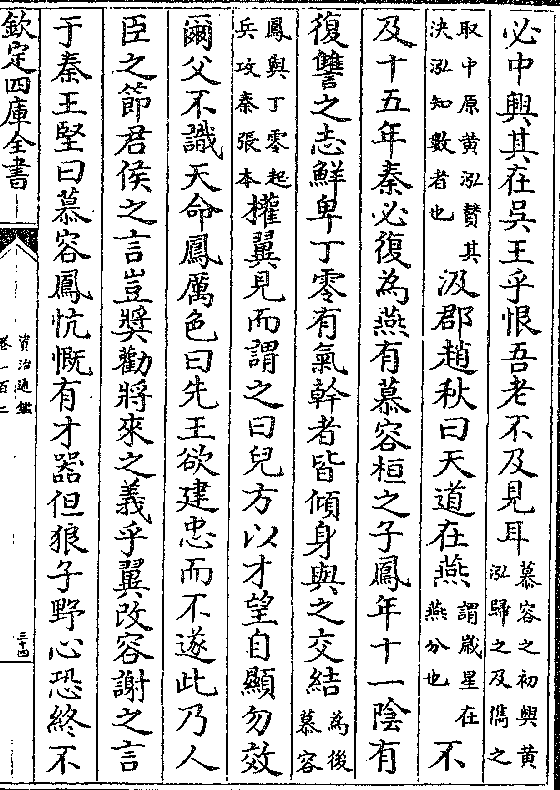 必中興其在吳王乎恨吾老不及見耳慕容之初興黄泓歸之及儁之
取中原黄泓賛其決泓知數者也汲郡趙秋曰天道在燕謂嵗星在燕分也不
及十五年秦必復為燕有慕容桓之子鳳年十一隂有
復讐之志鮮卑丁零有氣幹者皆傾身與之交結為後慕容
鳳與丁零起兵攻秦張本權翼見而謂之曰兒方以才望自顯勿效
爾父不識天命鳳厲色曰先王欲建忠而不遂此乃人
臣之節君侯之言豈奬勸將來之義乎翼改容謝之言
于秦王堅曰慕容鳳忼慨有才器但狼子野心恐終不
欽定四庫全書
資治通鑑
卷一百二
三十四